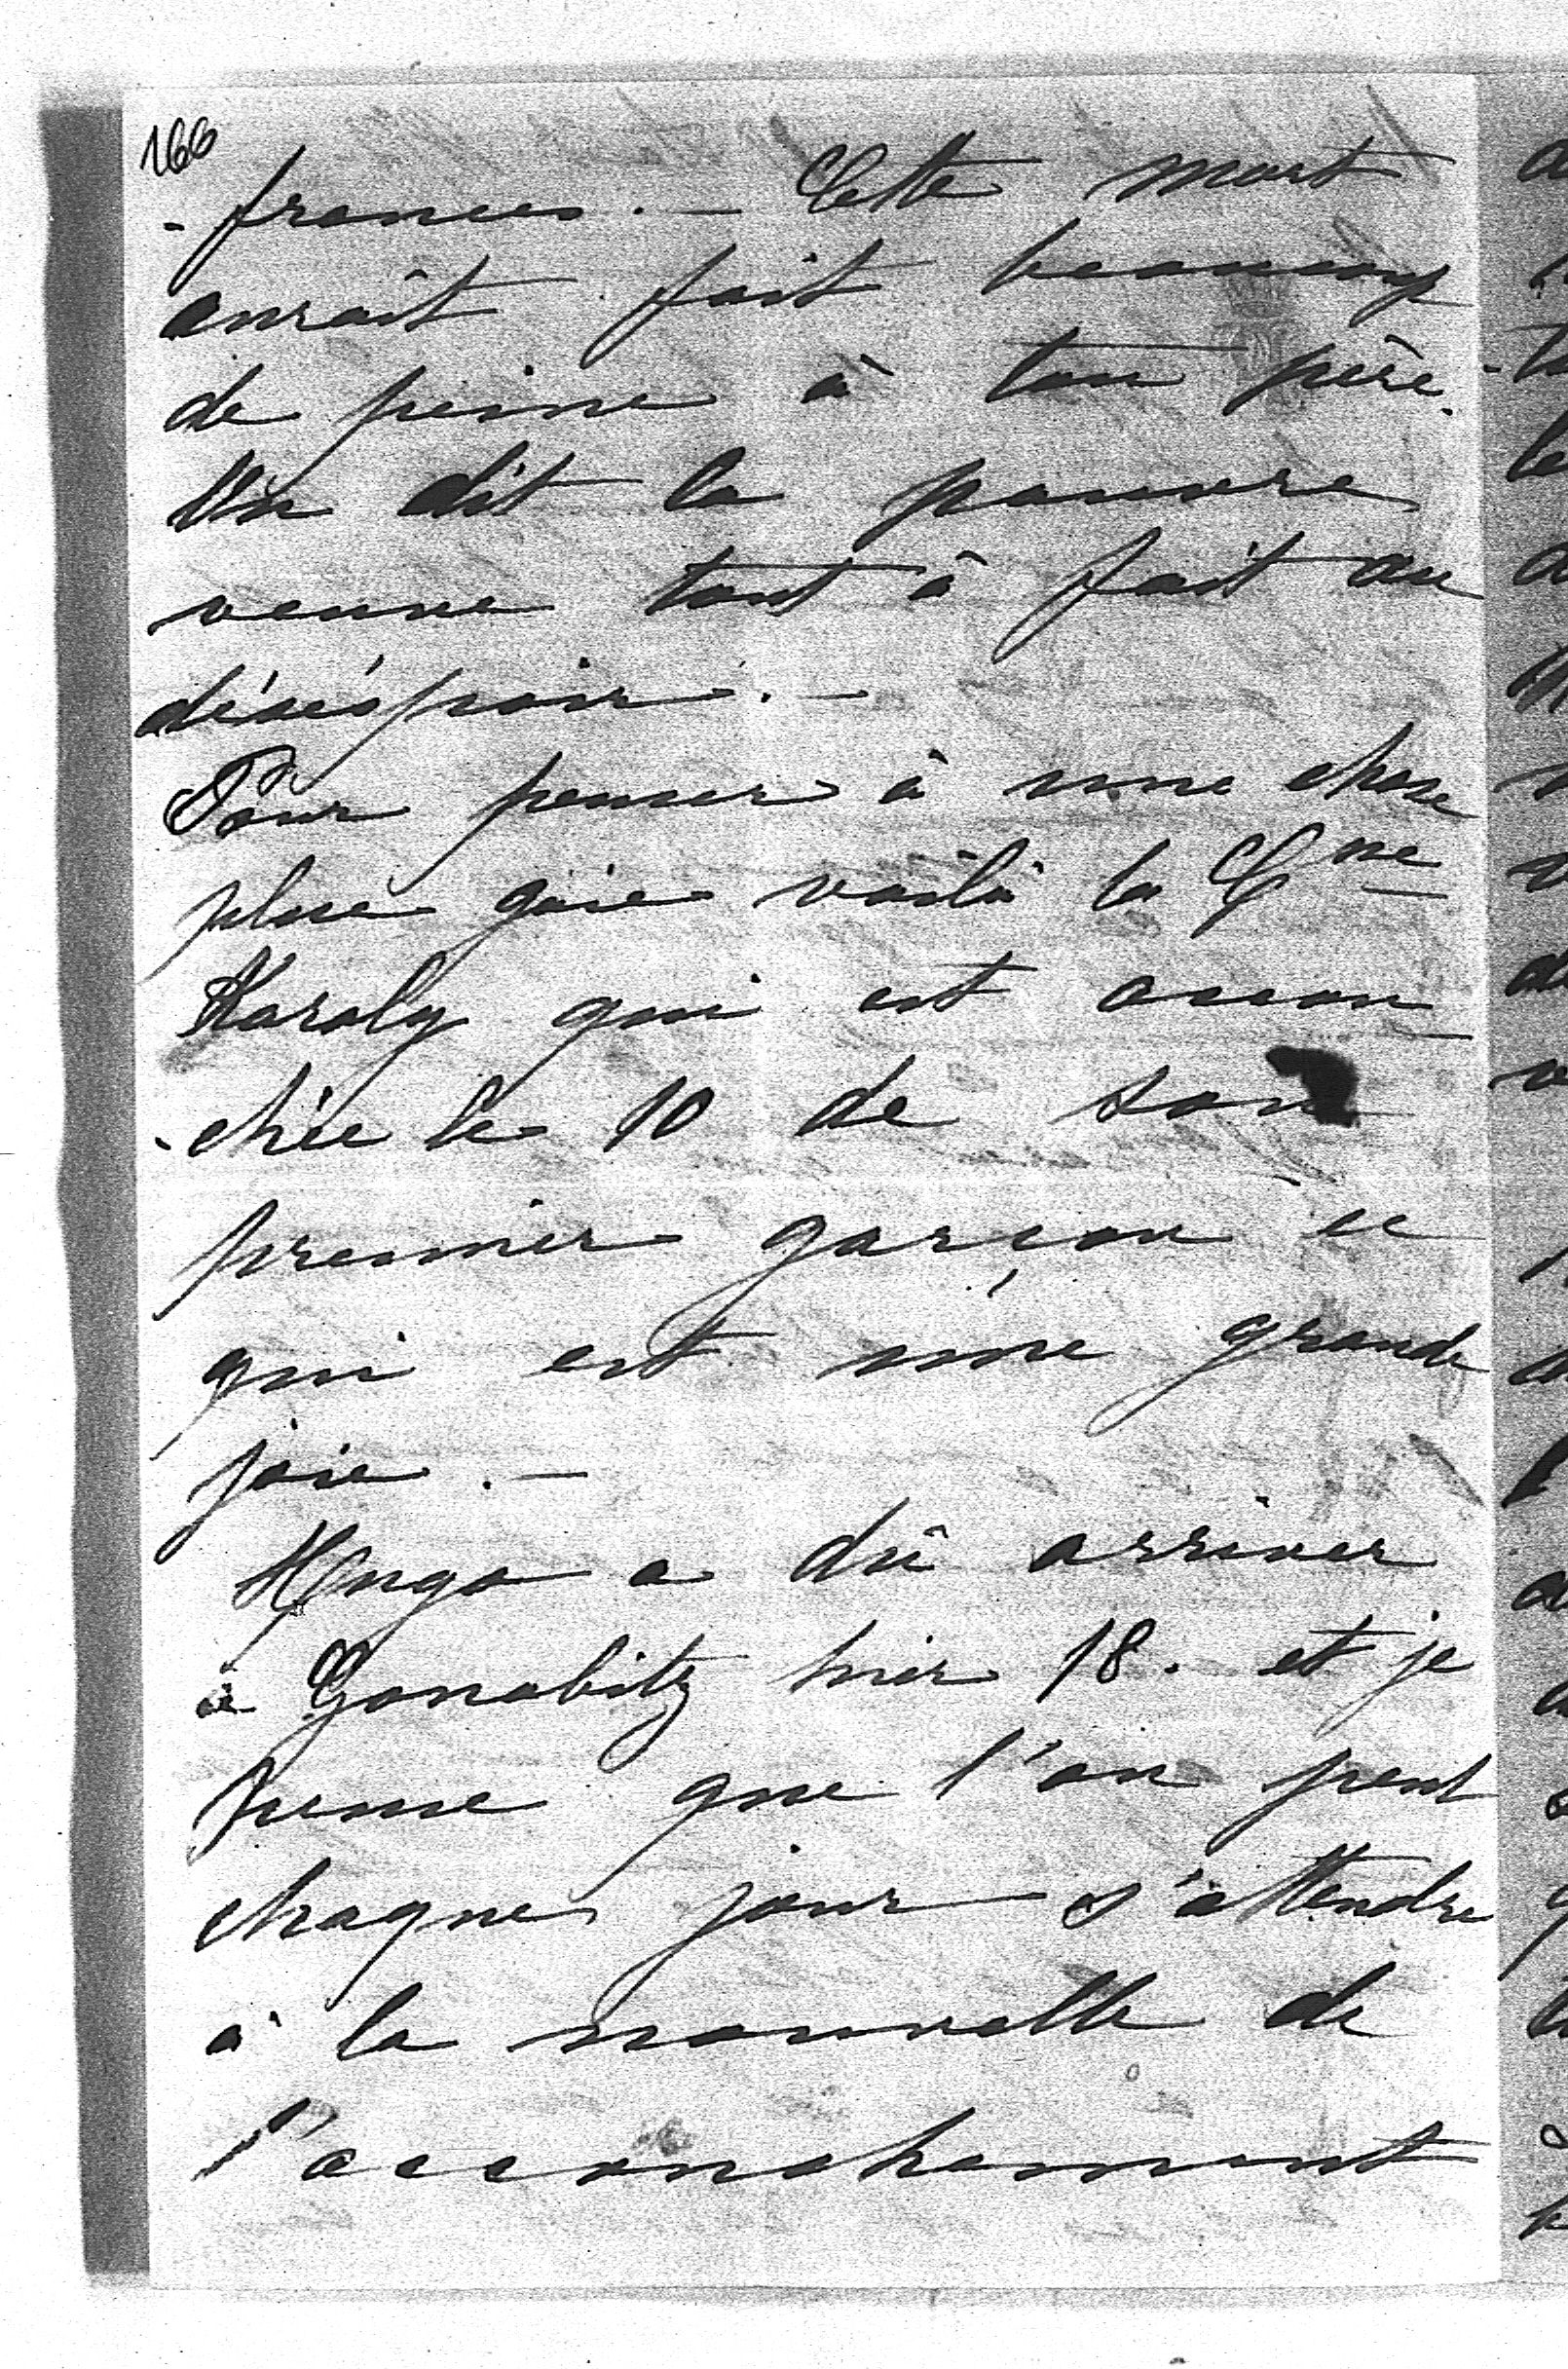 166
-frances. — Cette mort
aurait fait beaucoup
de peine à ton père.
On dit la pauvre
veuve tout à fait au
désespoir. —
Pour penser à une chose
plus gaie voilà la Csse
Karoly qui est accou
-chée le 10 de son
premier garçon ce
qui est une grande
joie. —
Hugo a dû arriver
à Gonobitz hier 18. et je
pense que l'on peut
chaque jour s'attendre
à la nouvelle de
l'accouchement